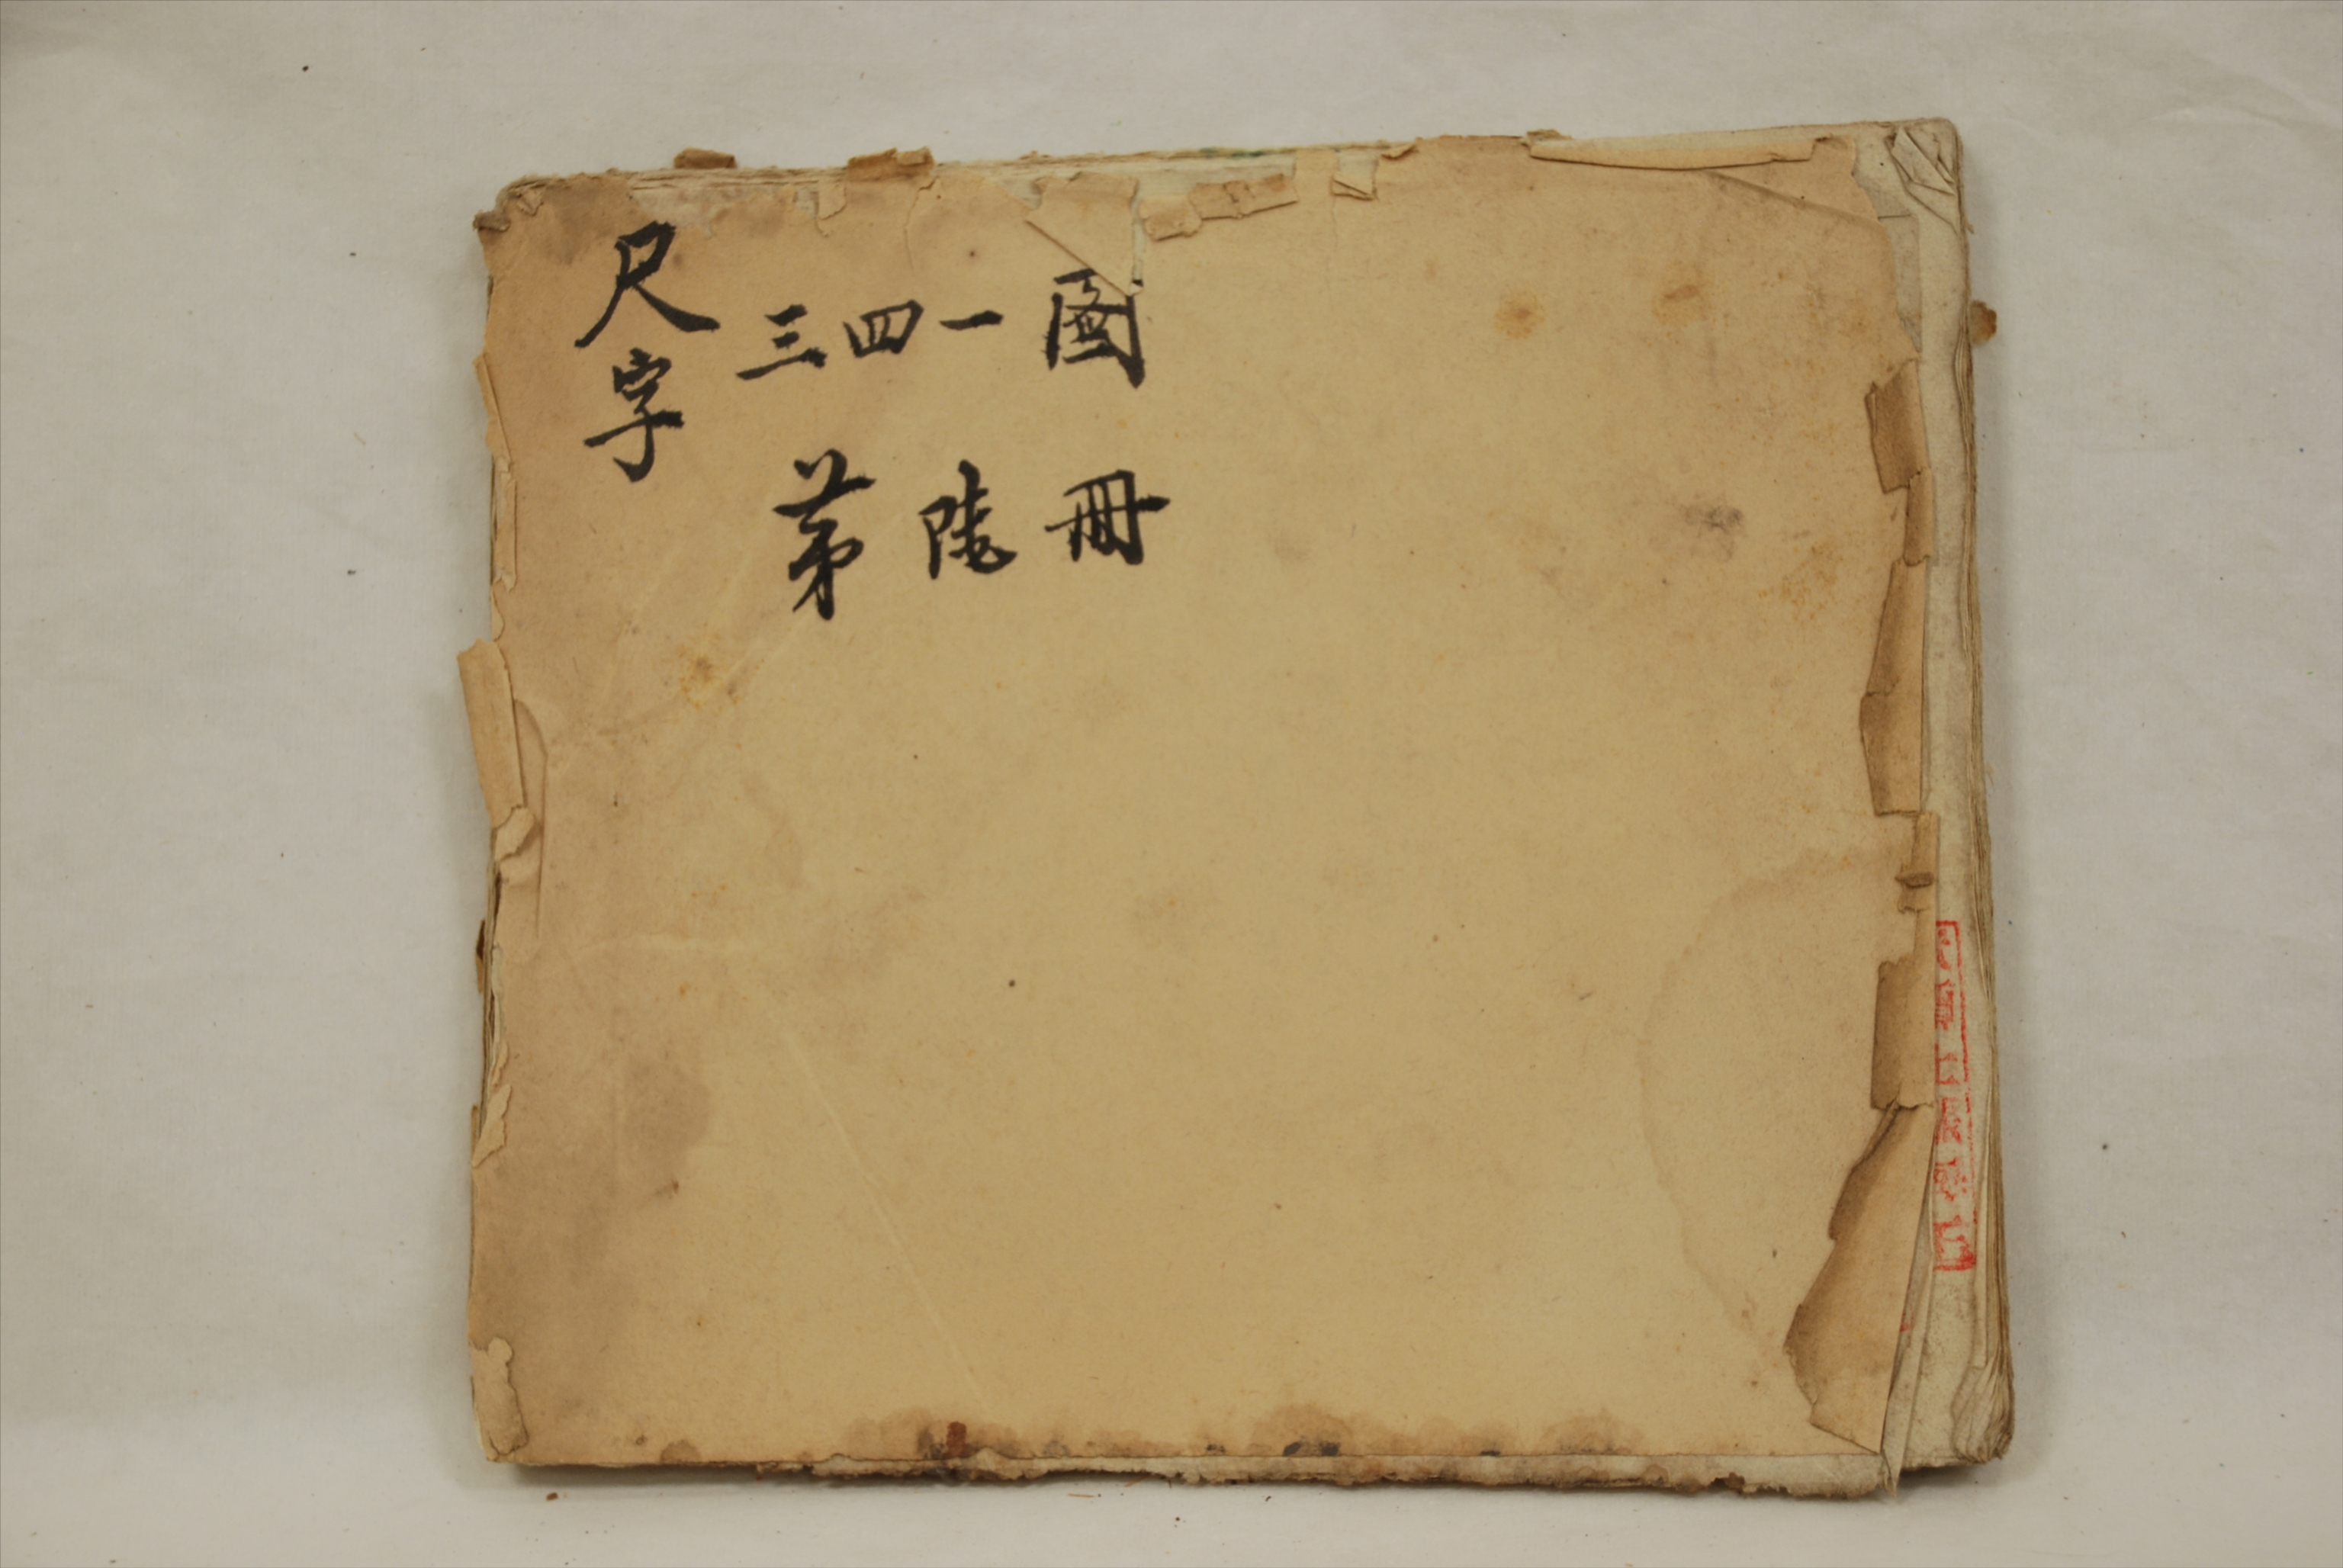 尺字
三四一圖
第陸冊